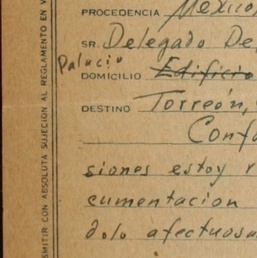 PROCEDENCIA Mexico
SR. Delegado De
Palacio
DOMICILIO Edificio
DESTINO Torreón,
Conf
siones estoy r
cumentacion
dolo afectuosa
SMITIR CON ABSOLUTA SUJECION AL REGLAMENTO EN V